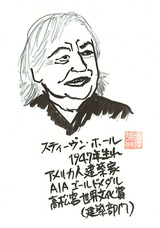 スティーヴン・ホール
1947年生れ
アメリカ人建築家
AIAゴールドメダル
高松宮世界文化賞
(建築部門)